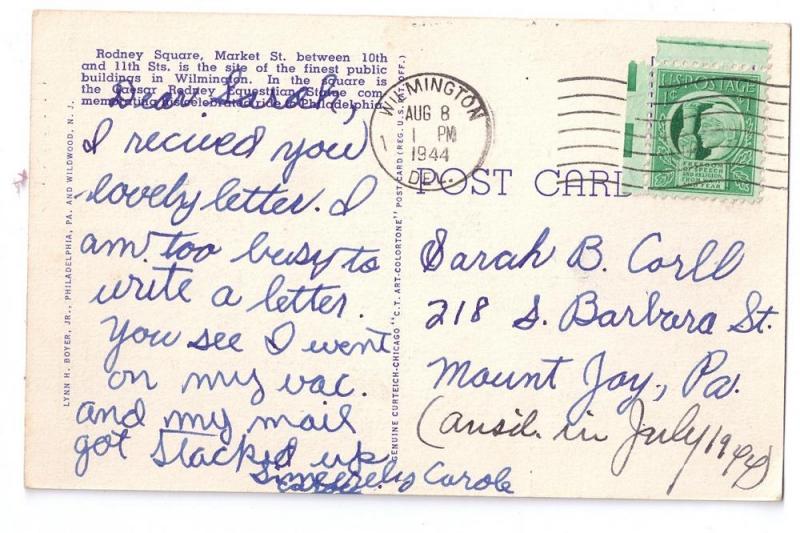 Rodney Square, Market St. between 10th
and 11th Sts. is the site of the finest public
buildings in Wilmington. In the square is
the Caesar Rodney Equestrian Statue com-
memorating his celebrated ride to Philadelphia.
Dear Sarah,
I recived you
lovely letter. I
am too busy to
write a letter.
You see I went
on my vac.
and my mail
got stacked up
Sincerely Carole
LYNN H. BOYER, JR., PHILADELPHIA, PA. AND WILDWOOD, N. J.
GENUINE CURTEICH-CHICAGO "C.T. ART-COLORTONE" POST CARD (REG. U.S. PAT. OFF.)
WILMINGTON
AUG 8
1 PM
1944
DEL.
1
U.S. POSTAGE
1¢
FREEDOM
OF SPEECH
AND RELIGION,
FROM WANT
AND FEAR
POST CARD
Sarah B. Corll
218 S. Barbara St.
Mount Joy, Pa.
(ansd. in July 1944)